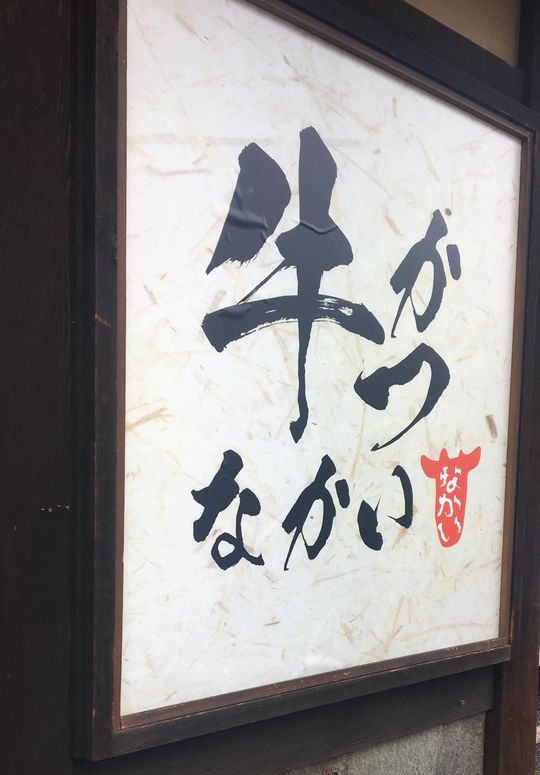 牛がつ
なかい
なかい